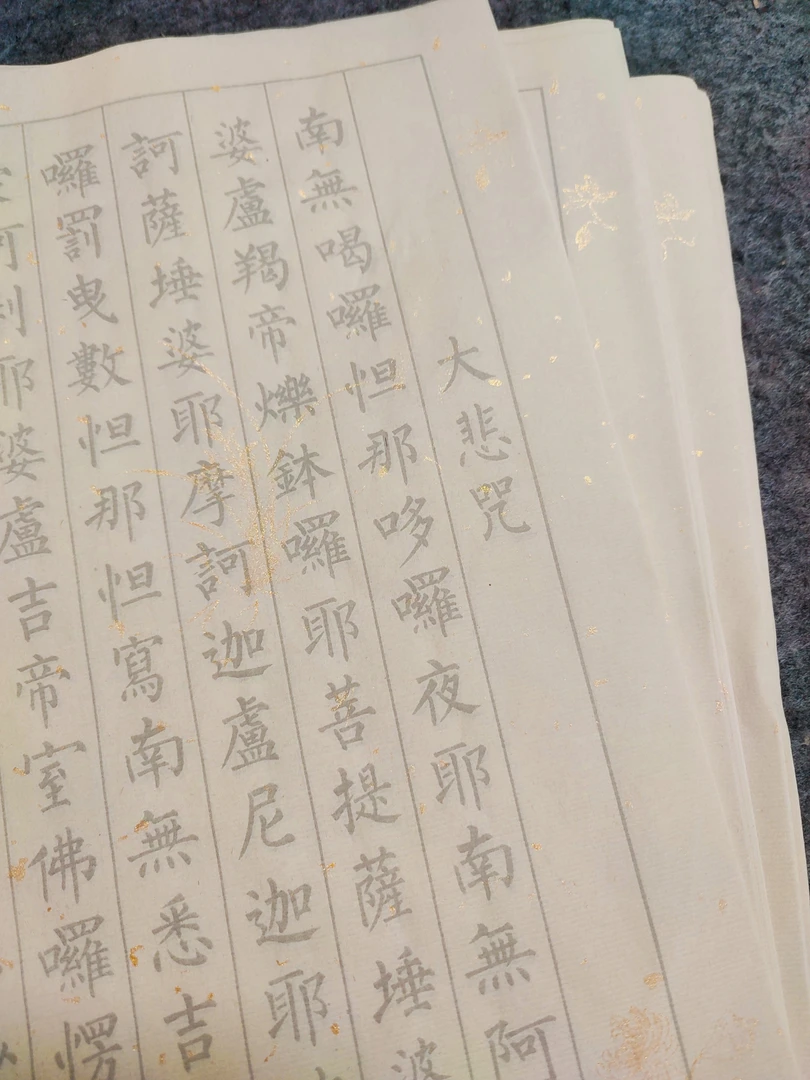 大悲咒
南無喝囉怛那哆囉夜耶南無阿
婆盧羯帝爍鉢囉耶菩提薩埵婆
訶薩埵婆耶摩訶迦盧尼迦耶
囉罰曳數怛那怛寫南無悉吉
耶婆盧吉帝室佛囉愣